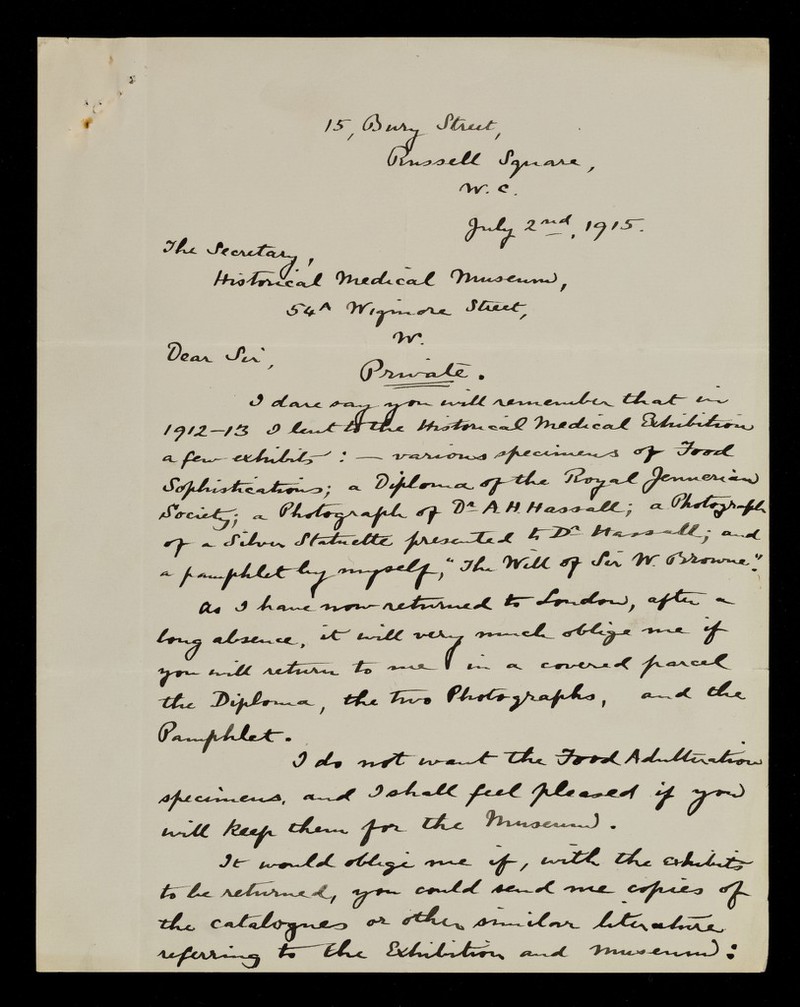 15, Bury Street,
Russell Square,
W. C.
July 2nd, 1915.
The Secretary,
Historical Medical Museum,
54A Wigmore Street,
W.
Dear Sir,
Private.
I dare say you will remember that in
1912-13 I lent to the Historical Medical Exhibition
a few exhibits: — various specimens of Food
Sophistications; a Diploma of the Royal Jennerian
Society; a Photograph of Dr A. H. Hassall; a Photograph
of a Silver Statuette presented to Dr Hassall; and
a pamphlet by myself, "The Will of Sir W. Browne".
As I have now returned to London, after a
long absence, it will very much oblige me if
you will return to me in a covered parcel
the Diploma, the two Photographs, and the
Pamphlet.
I do not want the Food Adulteration
specimens, and I shall feel pleased if you
will keep them for the Museum.
It would oblige me if, with the exhibits
to be returned, you could send me copies of
the catalogues or other similar literature
referring to the Exhibition and Museum: